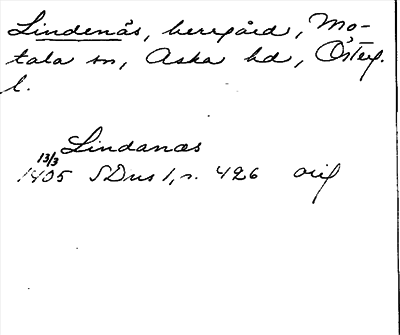 Lindenäs, herrgård, Mo-
tala sn, Aska hd, Österg.
l.
Lindanæs
13/3
1405 SDns 1, n. 426 orig